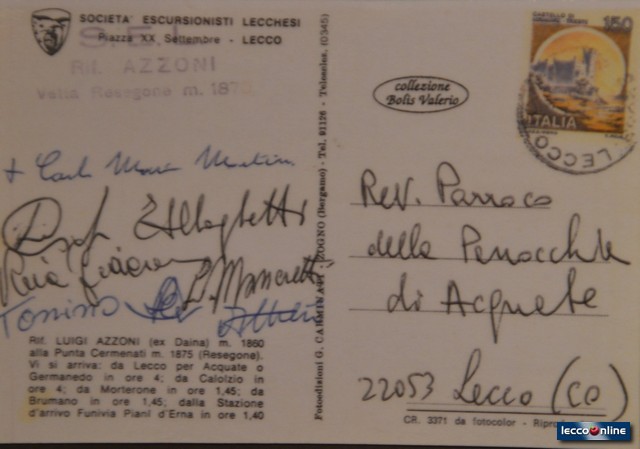 SOCIETA' ESCURSIONISTI LECCHESI
Piazza XX Settembre - LECCO
S.E.L.
Rif. AZZONI
Vetta Resegone m. 187
+ Carlo Maria Martini
Tonino
Rif. LUIGI AZZONI (ex Daina) m. 1860
alla Punta Cermenati m. 1875 (Resegone).
Vi si arriva: da Lecco per Acquate o
Germanedo in ore 4; da Calolzio in
ore 4; da Morterone in ore 1,45; da
Brumano in ore 1,45; dalla Stazione
d'arrivo Funivia Piani d'Erna in ore 1,40
Fotoedizioni G. CARMINATI - ZOGNO (Bergamo) - Tel. 91126 - Teleselez. (0345)
collezione
Bolis Valerio
150
ITALIA
LECCO
Rev. Parroco
della Parrocchia
di Acquate
22053 Lecco (CO)
CR. 3371 da fotocolor - Ripro
leccoonline